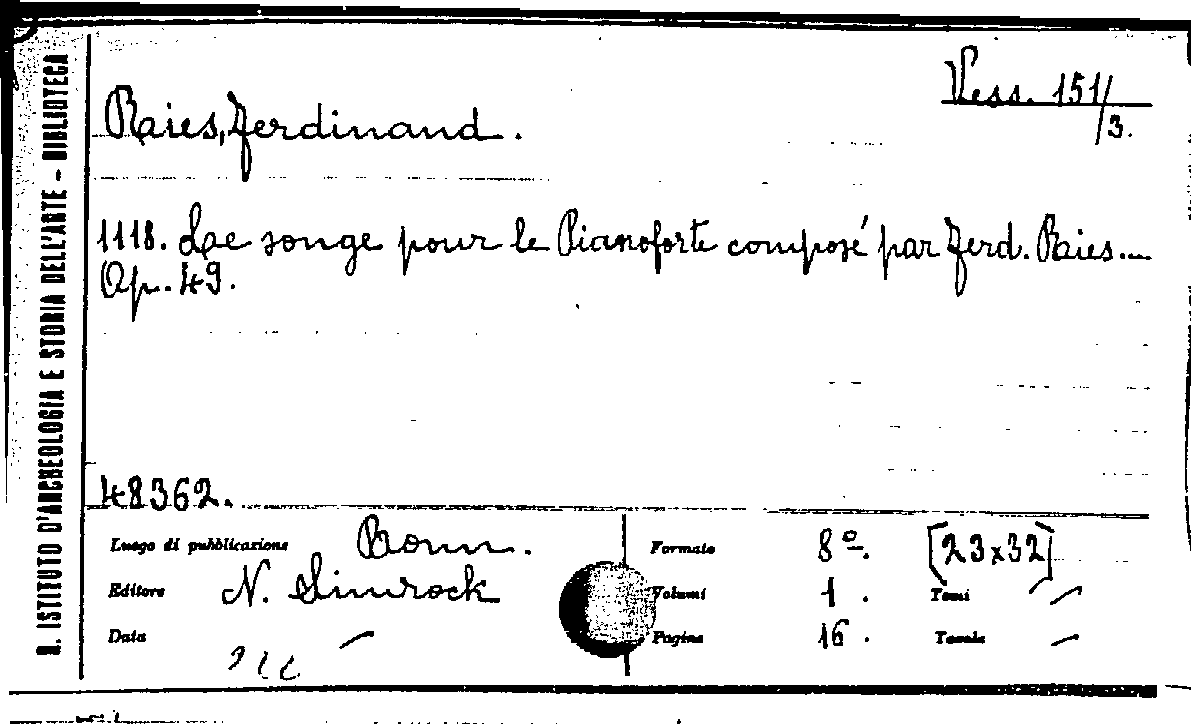 R. ISTITUTO D'ARCHEOLOGIA E STORIA DELL'ARTE – BIBLIOTECA
Vess. 151/3.
Raies, Ferdinand.
1118. Lae songe pour le Pianoforte composé par Ferd. Raies....
Op. 49.
48362.
Luogo di pubblicazione Bonn. Formato 8º. [23x32]
Editore N. Simrock Volumi 1. Tomi —
Data — Pagine 16. Tavole —